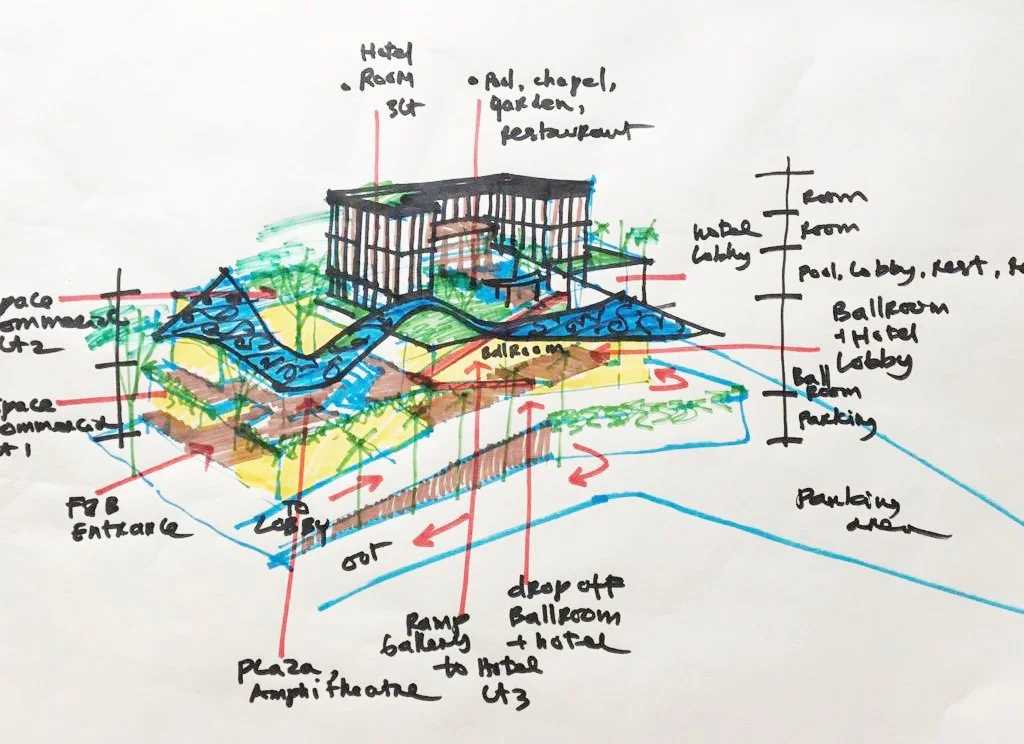 Hotel
Room
3Lt
Pool, chapel,
garden,
restaurant
Room
Room
Hotel
Lobby
Pool, Lobby, Rest, Re
Ballroom
+ Hotel
Lobby
Ball
Room
Parking
space
commercial
Lt2
space
commercial
Lt 1
Ballroom
F&B
Entrance
TO
LOBBY
out
Parking
area
drop off
Ballroom
+ hotel
Ramp
Gallery
to Hotel
Lt3
Plaza,
Amphitheatre